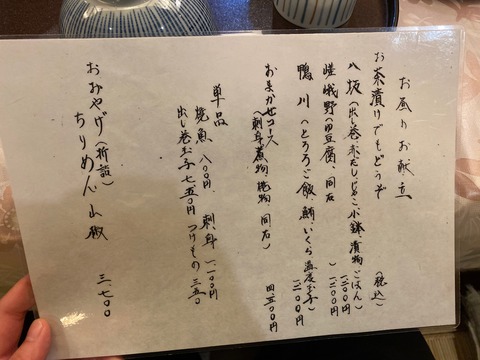 お昼のお献立
お茶漬けでもどうぞ
(税込)
八坂(出し巻、赤だし、じゃこ、小鉢、漬物、ごはん)
一二〇〇円
嵯峨野(田豆腐、同右)
一二〇〇円
鴨川(とろろご飯、鮪、いくら、温度玉子)
一二〇〇円
おまかせコース
(刺身、煮物、焼物、同右)
四五〇〇円
単品
焼魚 八〇〇円、刺身 一一〇〇円
出し巻玉子 七五〇円 つけもの 三五〇
おみやげ(折詰)
ちりめん山椒 三、七〇〇